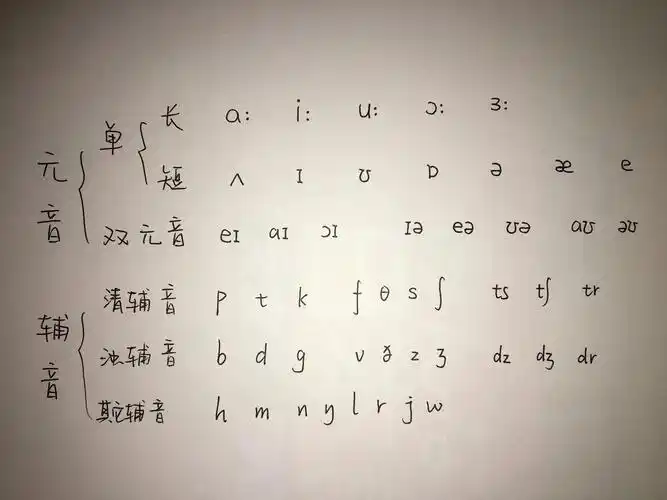 元音
单
长 a: i: u: ɔ: ɜ:
短 ʌ ɪ ʊ ɒ ə æ e
双元音 eɪ aɪ ɔɪ ɪə eə ʊə aʊ əʊ
辅音
清辅音 p t k f θ s ʃ ts tʃ tr
浊辅音 b d g v ð z ʒ dz dʒ dr
其它辅音 h m n ŋ l r j w